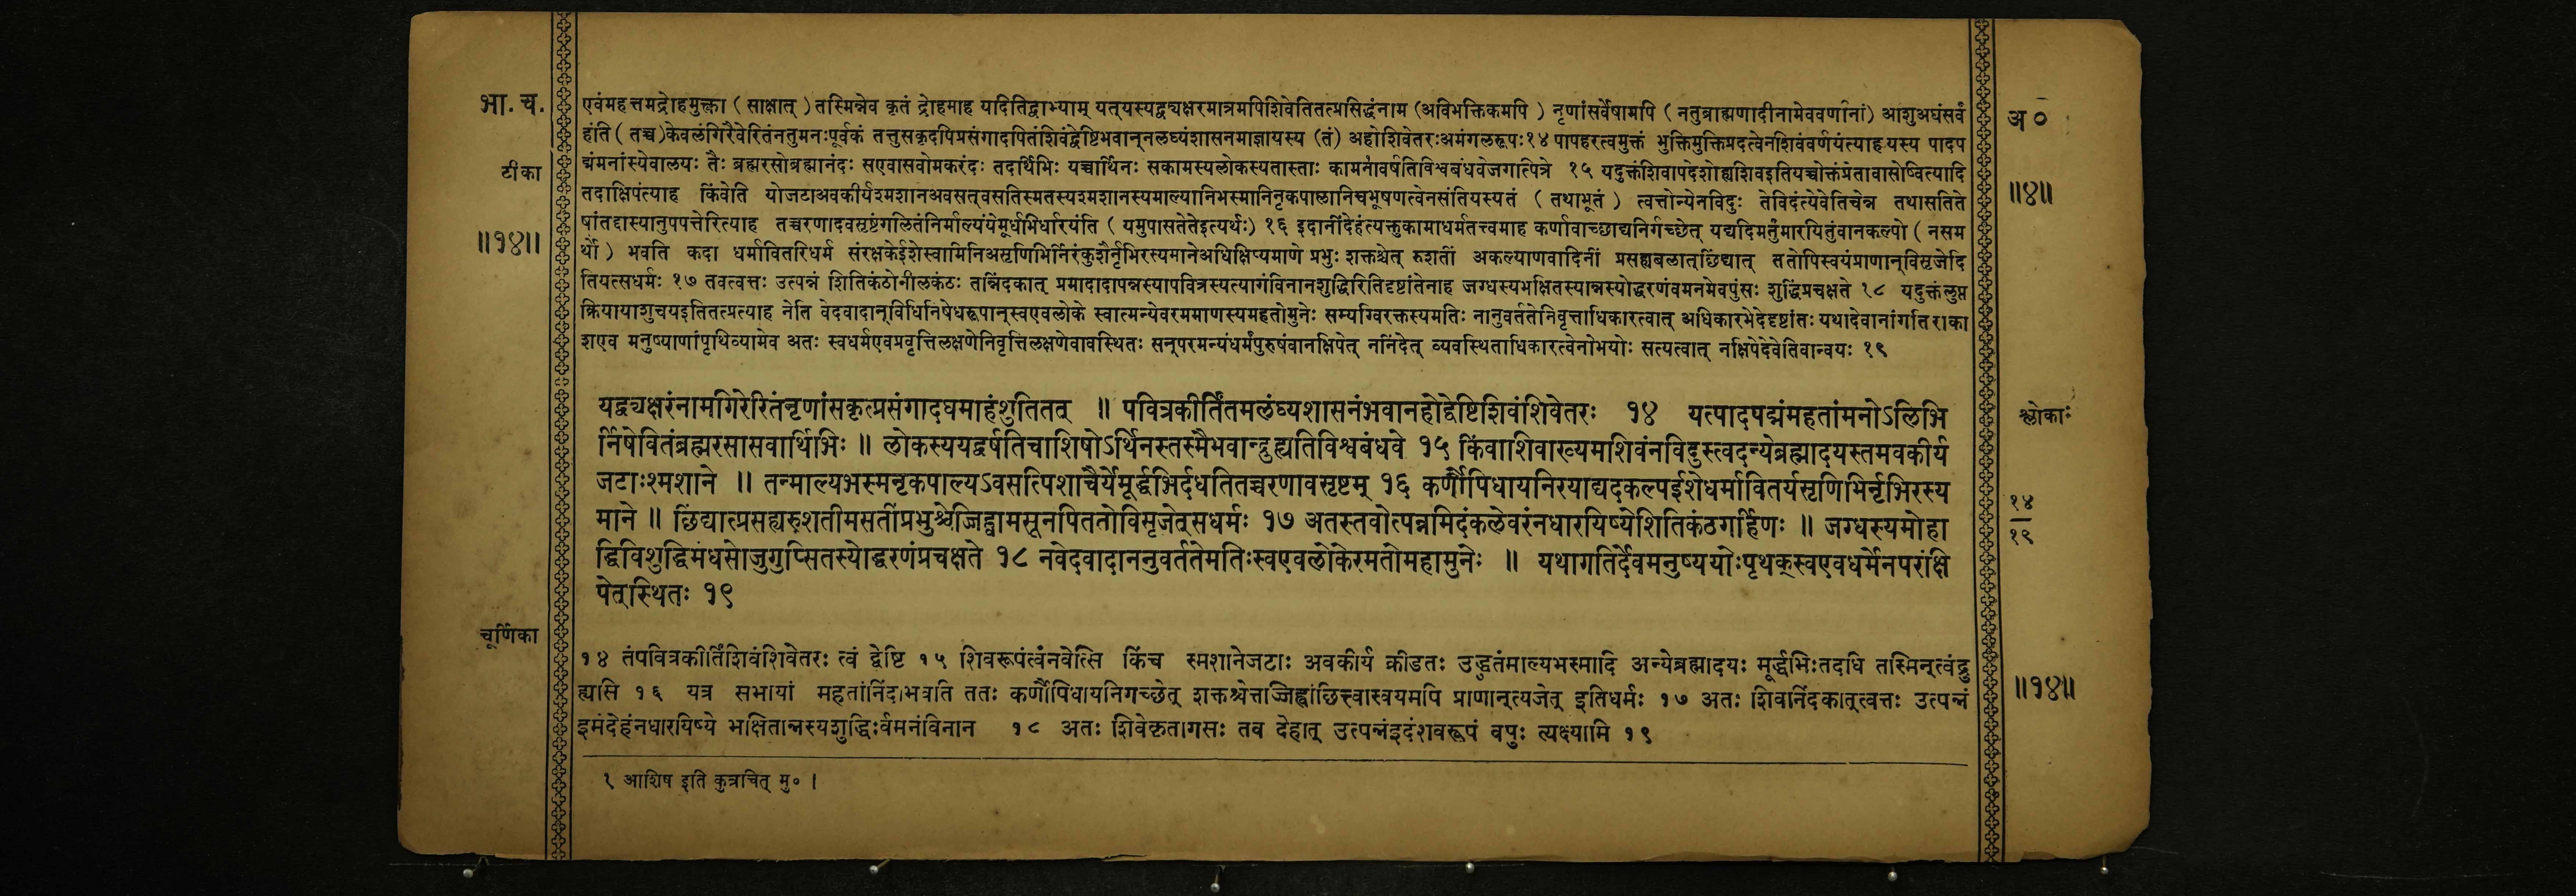 भा. च.
टीका
॥१४॥
एवंमहत्तमद्रोहमुक्त्वा ( साक्षात् ) तस्मिन्नेव कृतं द्रोहमाह यदितिद्वाभ्याम् यत्यस्यद्व्यक्षरमात्रमपिशिवेतितत्प्रसिद्धंनाम (अविभक्तिकमपि ) नृणांसर्वेषामपि ( नतुब्राह्मणादीनामेववर्णानां) आशुअघंसर्वं
हंति ( तच्च )केवलंगिरैवेरितंनतुमनःपूर्वकं तत्तुसकृदपिप्रसंगादपितंशिवंद्वेष्टिभवान्नलघ्यंशासनमाज्ञायस्य (तं) अहोशिवेतरःअमंगलरूपः१४ पापहरत्वमुक्तं भुक्तिमुक्तिप्रदत्वेनशिवंवर्णयंत्याह यस्य पादप
द्मंमनांस्येवालयः तैः ब्रह्मरसोब्रह्मानंदः सएवासवोमकरंदः तदर्थिभिः यच्चार्थिनः सकामस्यलोकस्यतास्ताः कामनांवर्षतिविश्वबंधवेजगत्पित्रे १५ यदुक्तंशिवापदेशोह्यशिवइतियच्चोक्तंप्रेतावासोष्वित्यादि
तदाक्षिपंत्याह किंवेति योजटाअवकीर्यश्मशानअवसत्वसतिस्मतस्यश्मशानस्यमाल्यानिभस्मानिनृकपालानिचभूषणत्वेनसंतियस्यतं ( तथाभूतं ) त्वत्तोन्येनविदुः तेविदंत्येवेतिचेन्न तथासतिते
षांतद्दास्यानुपपत्तेरित्याह तच्चरणादवसृष्टंगलितंनिर्माल्यंयेमूर्धभिर्धारयंति ( यमुपासतेतेइत्यर्थः) १६ इदानींदेहंत्यक्तुकामाधर्मतत्त्वमाह कर्णावाच्छाद्यनिर्गच्छेत् यद्यदिमर्तुंमारयितुंवानकल्पो ( नसम
र्थो ) भवति कदा धर्मावितरिधर्म संरक्षकेईशेस्वामिनिअसृणिभिर्निरंकुशैर्नृभिरस्यमानेअधिक्षिप्यमाणे प्रभुः शक्तश्चेत् रुशतीं अकल्याणवादिनीं प्रसह्यबलात्छिंद्यात् ततोपिस्वयंप्राणान्विसृजेदि
तियत्सधर्मः १७ तवत्वत्तः उत्पन्नं शितिकंठोनीलकंठः तन्निंदकात् प्रमादादापन्नस्यापवित्रस्यत्यागंविनानशुद्धिरितिदृष्टांतेनाह जग्धस्यभक्षितस्यान्नस्योद्धरणंवमनमेवपुंसः शुद्धिंप्रचक्षते १८ यदुक्तंलुप्त
क्रियायाशुचयइतितत्प्रत्याह नेति वेदवादान्विधिनिषेधरूपान्स्वएवलोके स्वात्मन्येवरममाणस्यमहतोमुनेः सम्यग्विरक्तस्यमतिः नानुवर्ततेनिवृत्ताधिकारत्वात् अधिकारभेदेदृष्टांतः यथादेवानांगतिराका
शएव मनुष्याणांपृथिव्यामेव अतः स्वधर्मएवप्रवृत्तिलक्षणेनिवृत्तिलक्षणेवावस्थितः सन्परमन्यंधर्मंपुरुषंवानक्षिपेत् ननिंदेत् व्यवस्थिताधिकारत्वेनोभयोः सत्यत्वात् नक्षिपेदेवेतिवान्वयः १९
अ०
॥४॥
यद्व्यक्षरंनामगिरेरितंनृणांसकृत्प्रसंगादघमाहंशुतितत् ॥ पवित्रकीर्तिंतमलंघ्यशासनंभवानहोद्वेष्टिशिवंशिवेतरः १४ यत्पादपद्मंमहतांमनोऽलिभि
र्निषेवितंब्रह्मरसासवार्थिभिः ॥ लोकस्ययद्वर्षतिचाशिषोऽर्थिनस्तस्मैभवान्द्रुह्यतिविश्वबंधवे १५ किंवाशिवाख्यमशिवंनविदुस्त्वदन्येब्रह्मादयस्तमवकीर्य
जटाःश्मशाने ॥ तन्माल्यभस्मनृकपाल्यऽवसत्पिशाचैर्येमूर्द्धभिर्दधतितच्चरणावसृष्टम् १६ कर्णौपिधायनिरयाद्यदकल्पईशेधर्मावितर्यसृणिभिर्नृभिरस्य
माने ॥ छिंद्यात्प्रसह्यरुशतीमसतींप्रभुश्चेज्जिह्वामसूनपिततोविसृजेत्सधर्मः १७ अतस्तवोत्पन्नमिदंकलेवरंनधारयिष्येशितिकंठगर्हिणः ॥ जग्धस्यमोहा
द्धिविशुद्धिमंधसोजुगुप्सितस्योद्धरणंप्रचक्षते १८ नवेदवादाननुवर्ततेमतिःस्वएवलोकेरमतोमहामुनेः ॥ यथागतिर्देवमनुष्ययोःपृथक्स्वएवधर्मेनपरंक्षि
पेत्स्थितः १९
श्लोकाः
१४
१९
चूर्णिका
१४ तंपवित्रकीर्तिंशिवंशिवेतरः त्वं द्वेष्टि १५ शिवरूपंत्वंनवेत्सि किंच स्मशानेजटाः अवकीर्य क्रीडतः उद्धृतंमाल्यभस्मादि अन्येब्रह्मादयः मूर्द्धभिःतदधि तस्मिन्त्वंद्रु
ह्यसि १६ यत्र सभायां महतांनिंदाभवति ततः कर्णौपिधायनिगच्छेत् शक्तश्चेत्ताज्जिह्वांछित्त्वास्वयमपि प्राणान्त्यजेत् इतिधर्मः १७ अतः शिवनिंदकात्त्वत्तः उत्पन्नं
इमंदेहंनधारयिष्ये भक्षितान्नस्यशुद्धिःर्वमनंविनान १८ अतः शिवेकृतागसः तव देहात् उत्पन्नंइदंशवरूपं वपुः त्यक्ष्यामि १९
॥१४॥
१ आशिष इति कुत्रचित् मु० ।